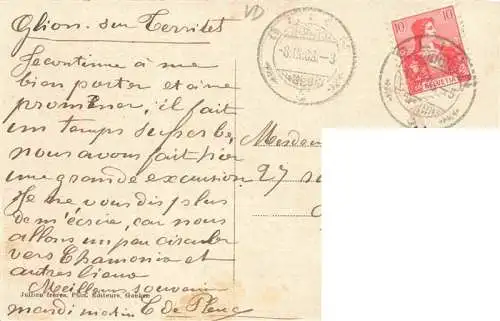 Glion-sur Territet
Je continue à me
bien porter et à me
promener, il fait
un temps superbe,
nous avons fait hier
une grande excursion
Je ne vous dis plus
de m'écrire, car nous
allons un peu circuler
vers Chamonix et
autres lieux
Meilleurs souvenirs
mardi matin C de
Jullien frères, Phot. Editeurs, Genève
VD
Mesdem
27
10 10
HELVETIA